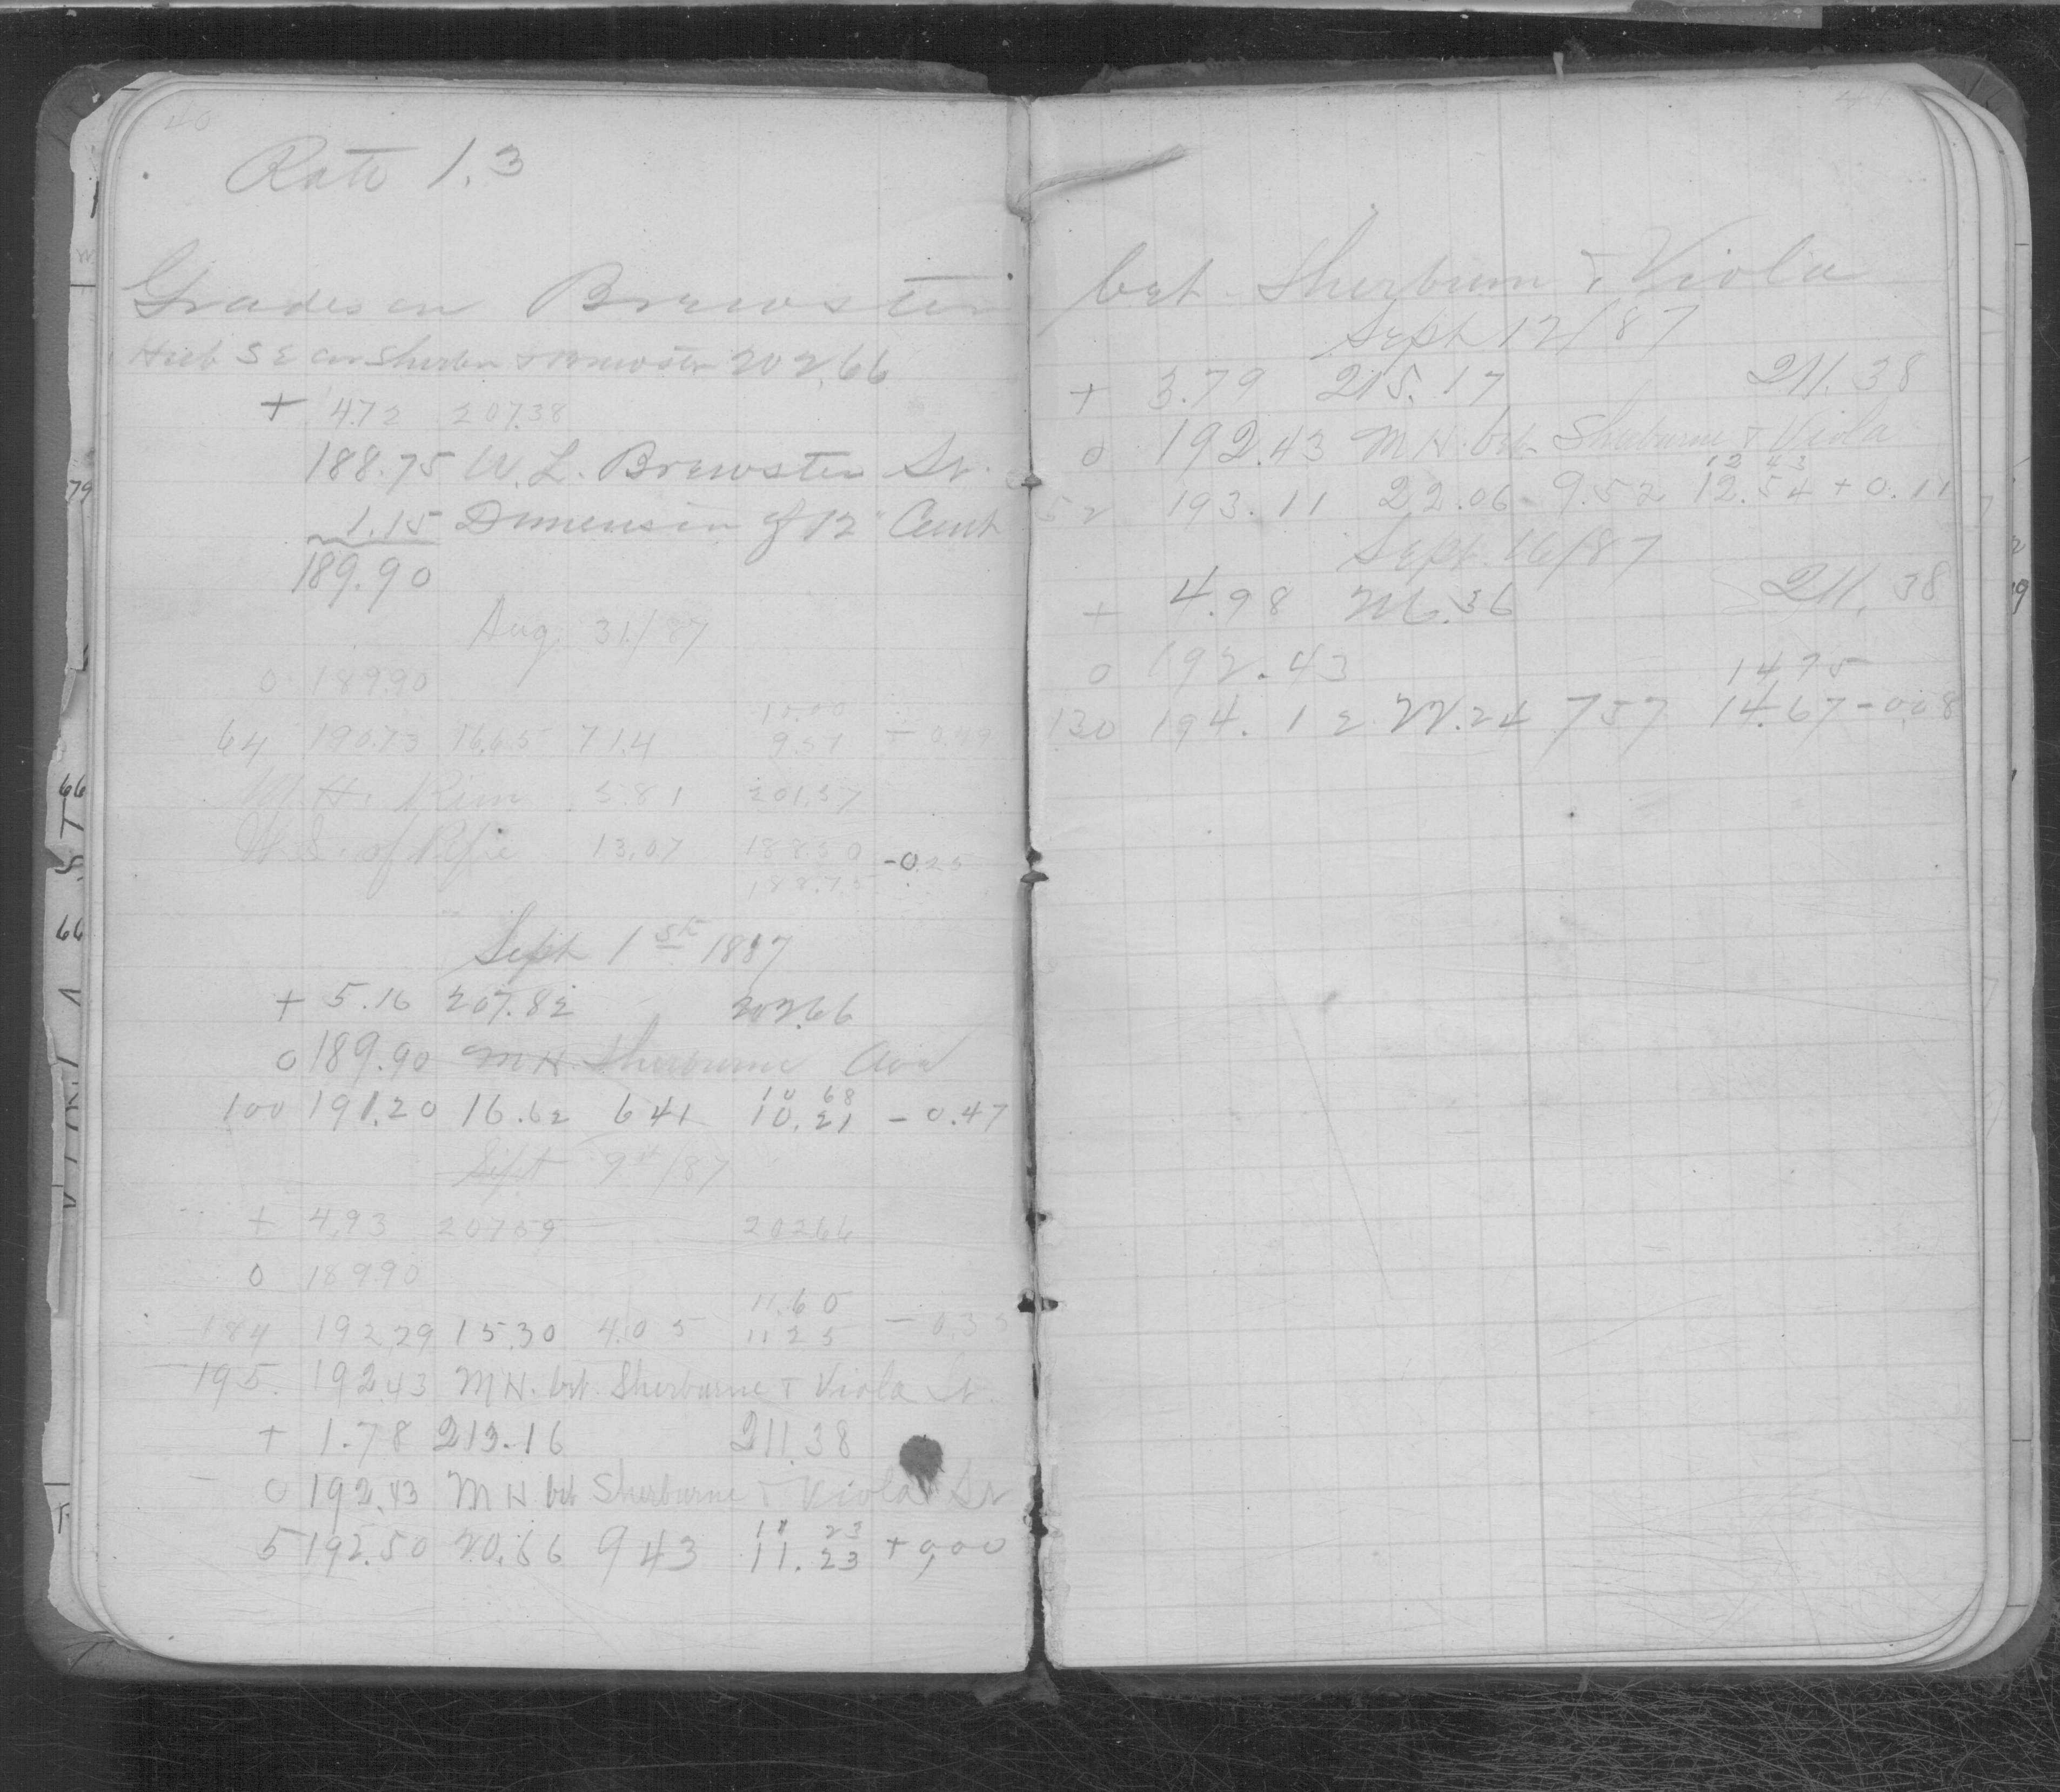 40
Rate 1.3
Grades on Brewster
Hub S E Cor Sherbn & Brewster 202.66
+ 4.72 207.38
188.75 W. L. Brewster St.
1.15 Dimension of 12" Cent
189.90
Aug 31/87
0 189.90
10.00
64 190.73 16.65 71.4 9.51 - 0.49
M. H. Rim 5.81 201.57
W. S. of Pipe 13.07 188.50 -0.25
188.75
Sept 1st 1887
+ 5.16 207.82 202.66
0 189.90 M H Sherburne Ave
10 68
100 191.20 16.62 641 10.21 - 0.47
Sept 9th/87
+ 4.93 207.59 202.66
0 189.90
11.60
184 192.29 15.30 4.05 11.25 - 0.35
195. 192.43 M H. bet. Sherburne & Viola St.
+ 1.78 213.16 211.38
0 192.43 M H bet Sherburne & Viola St
11 23
5 192.50 20.66 943 11.23 + 0,00
41
bet Sherburn & Viola
Sept 12/87
+ 3.79 215.17 211.38
0 192.43 M H. bet Sherburne & Viola
12 43
52 193.11 22.06 9.52 12.54 + 0.11
Sept. 16/87
+ 4.98 216.36 211.38
0 192.43
14.75
130 194.12 22.24 757 14.67 - 0.08